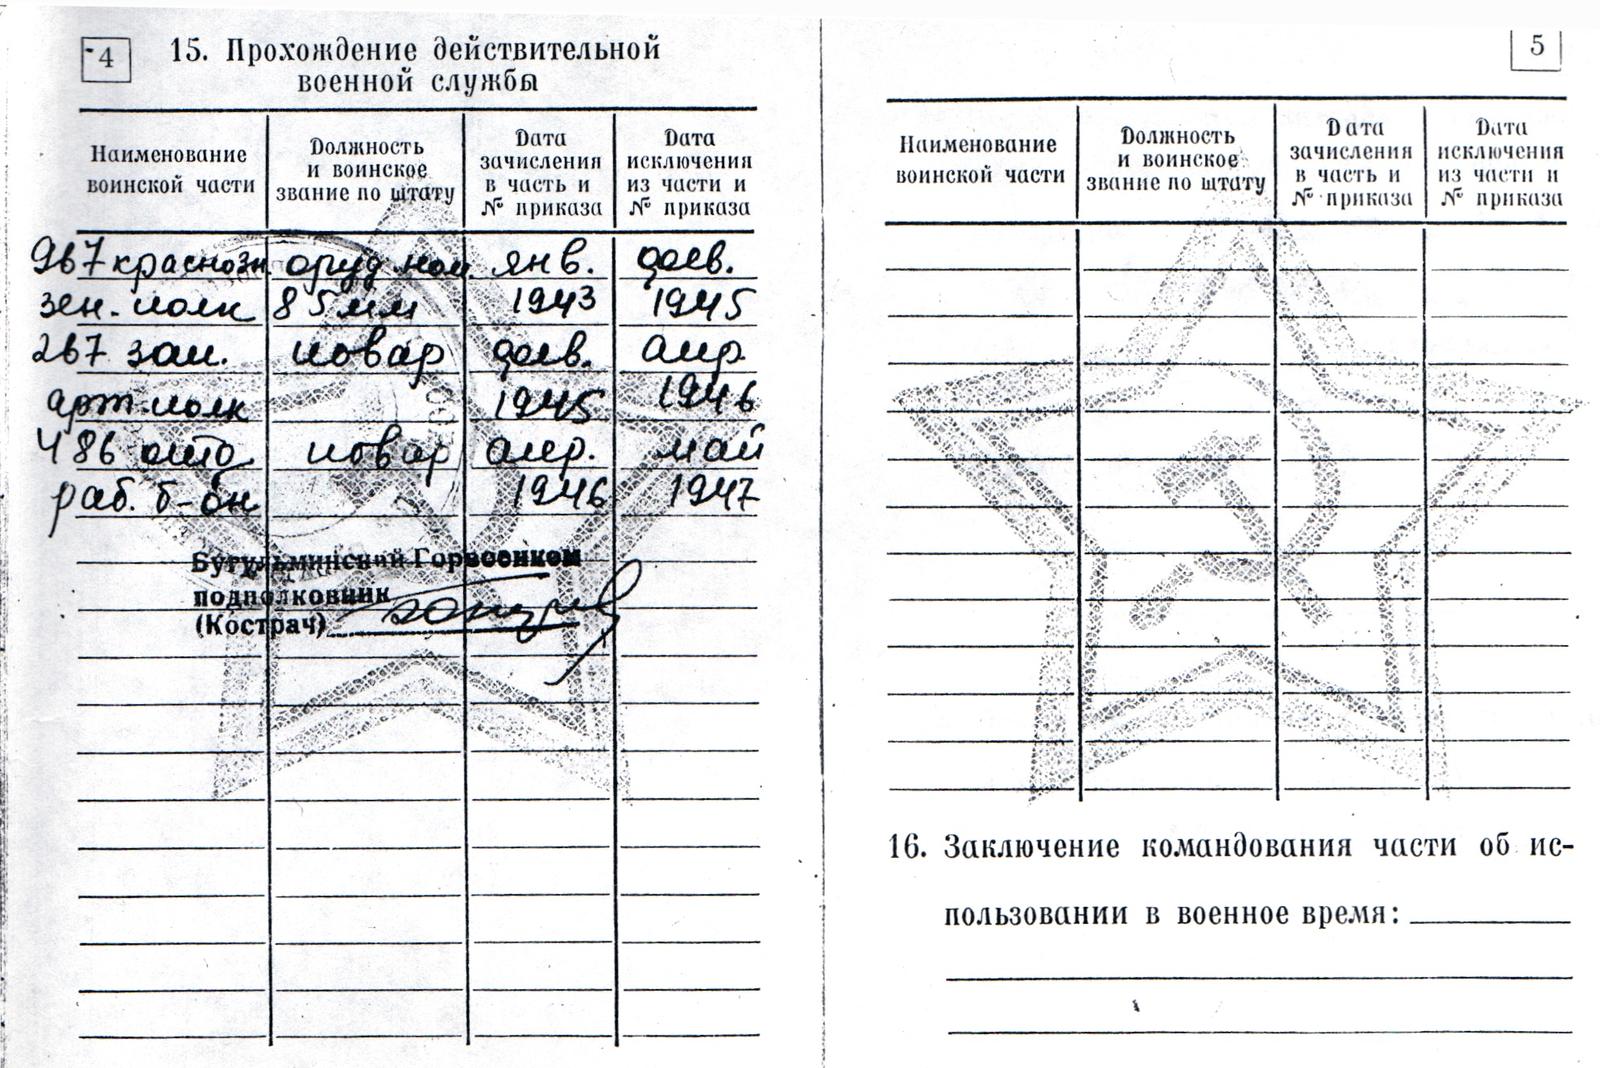 4
15. Прохождение действительной
военной службы
Наименование воинской части
Должность и воинское звание по штату
Дата зачисления в часть и № приказа
Дата исключения из части и № приказа
967 краснозн оруд. ном янв. фев.
зен. полк 85 мм 1943 1945
267 зап. повар фев. апр.
арт. полк 1945 1946
486 отд. повар апр. май
раб. б-он 1946 1947
Бугульминский Горвоенком
подполковник
(Кострач)
5
Наименование воинской части
Должность и воинское звание по штату
Дата зачисления в часть и № приказа
Дата исключения из части и № приказа
16. Заключение командования части об ис-
пользовании в военное время: